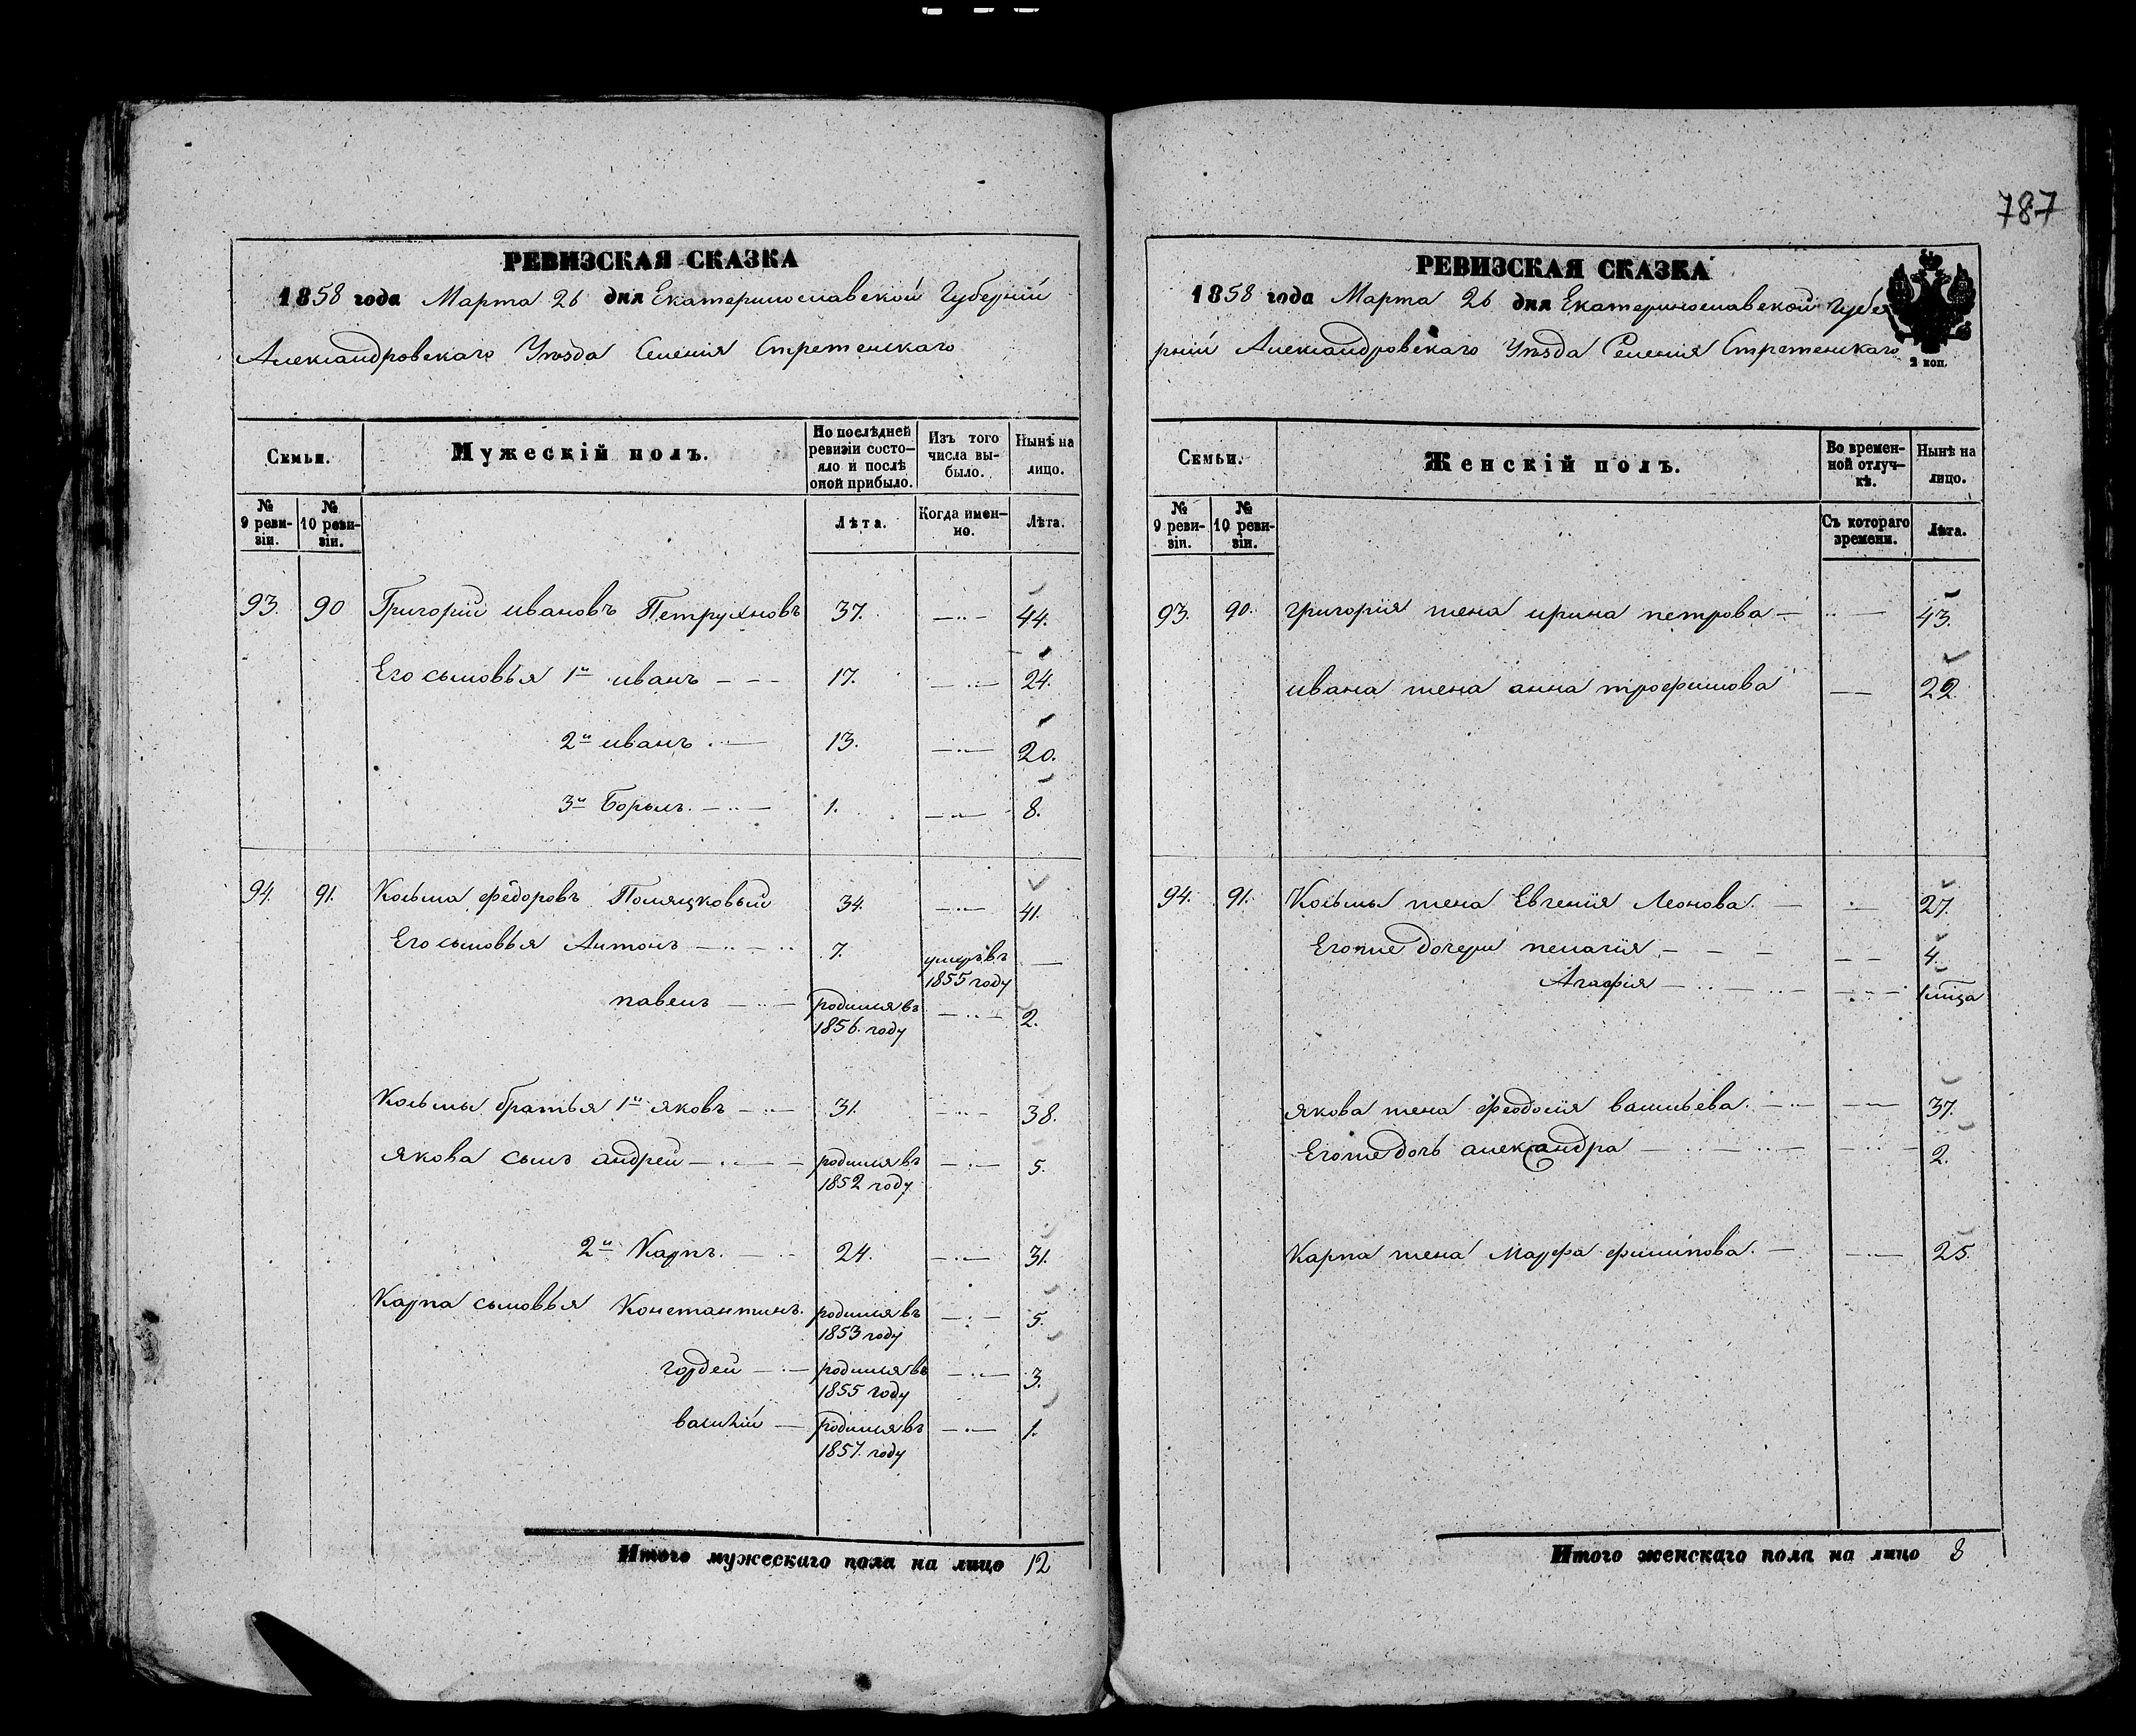 787
РЕВИЗСКАЯ СКАЗКА
1858 года Марта 26 дня Екатеринославской Губерніи
Александровскаго Уѣзда Селенія Стретенскаго
Семьи.
Мужескій полъ.
По послѣдней ревизіи состояло и послѣ оной прибыло.
Изъ того числа выбыло.
Нынѣ на лицо.
№ 9 ревизіи.
№ 10 ревизіи.
Лѣта.
Когда именно.
Лѣта.
93. 90 Григорій ивановъ Петрухновъ 37. 44.
Его сыновья 1й иванъ 17. 24.
2й иванъ 13. 20.
3й Борысъ 1. 8.
94. 91. Козьма федоровъ 34. 41.
Его сыновья Антонъ 7. умеръ въ 1855 году
павелъ родился въ 1856 году 2.
Козьмы братья 1й яковъ 31. 38.
Якова сынъ андрей родился въ 1852 году 5.
2й Карпъ. 24. 31.
Карпа сыновья Константинъ. родился въ 1853 году 5.
гордей родился въ 1855 году 3.
василій родился въ 1857. году 1.
Итого мужескаго пола на лицо 12
РЕВИЗСКАЯ СКАЗКА
1858 года Марта 26 дня Екатеринославской Губе
рніи Александровскаго Уѣзда Селенія Стретенскаго
2 коп.
Семьи.
Женскій полъ.
Во временной отлучкѣ.
Нынѣ на лицо.
№ 9 ревизіи.
№ 10 ревизіи.
Съ котораго времени.
Лѣта.
93. 90. григорія жена ирина петрова 43.
ивана жена анна трофимова 22
94. 91. Козьмы жена Евгенія Леонова. 27.
Егоже дочери пелагія 4.
Агафія 1 міца
якова жена феодосія васильева. 37.
Егоже дочь александра 2.
Карпа жена Марфа филипова. 25.
Итого женскаго пола на лицо 8